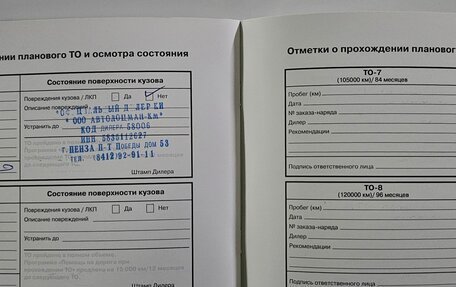 нии планового ТО и осмотра состояния
Состояние поверхности кузова
Повреждения кузова / ЛКП Да Нет
Описание повреждений
ООО "АВТОЛОЦМАН-КМ"
КОД ДИЛЕРА 58006
Устранить до
ИНН 5836112627
Г.ПЕНЗА П-Т ПОБЕДЫ ДОМ 53
ТЕЛ. (8412) 92-91-11
Штамп Дилера
Состояние поверхности кузова
Повреждения кузова / ЛКП Да Нет
Описание повреждений
Устранить до
ТО пройдено в полном объеме.
Программа «Помощь на дороге при
прохождении ТО» продлена на 15 000 км/12 месяцев
до следующего ТО.
Штамп Дилера
Отметки о прохождении планового
ТО-7
(105000 км)/ 84 месяцев
Пробег (км)
Дата
№ заказа-наряда
Дилер
Рекомендации
Подпись ответственного лица
ТО-8
(120000 км)/ 96 месяцев
Пробег (км)
Дата
№ заказа-наряда
Дилер
Рекомендации
Подпись ответственного лица